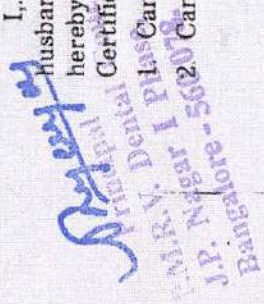 I,
husban
hereby
Certific
1. Car
2. Car
Principal
M.R.V. Dental
J.P. Nagar I Phase
Bangalore - 560078.